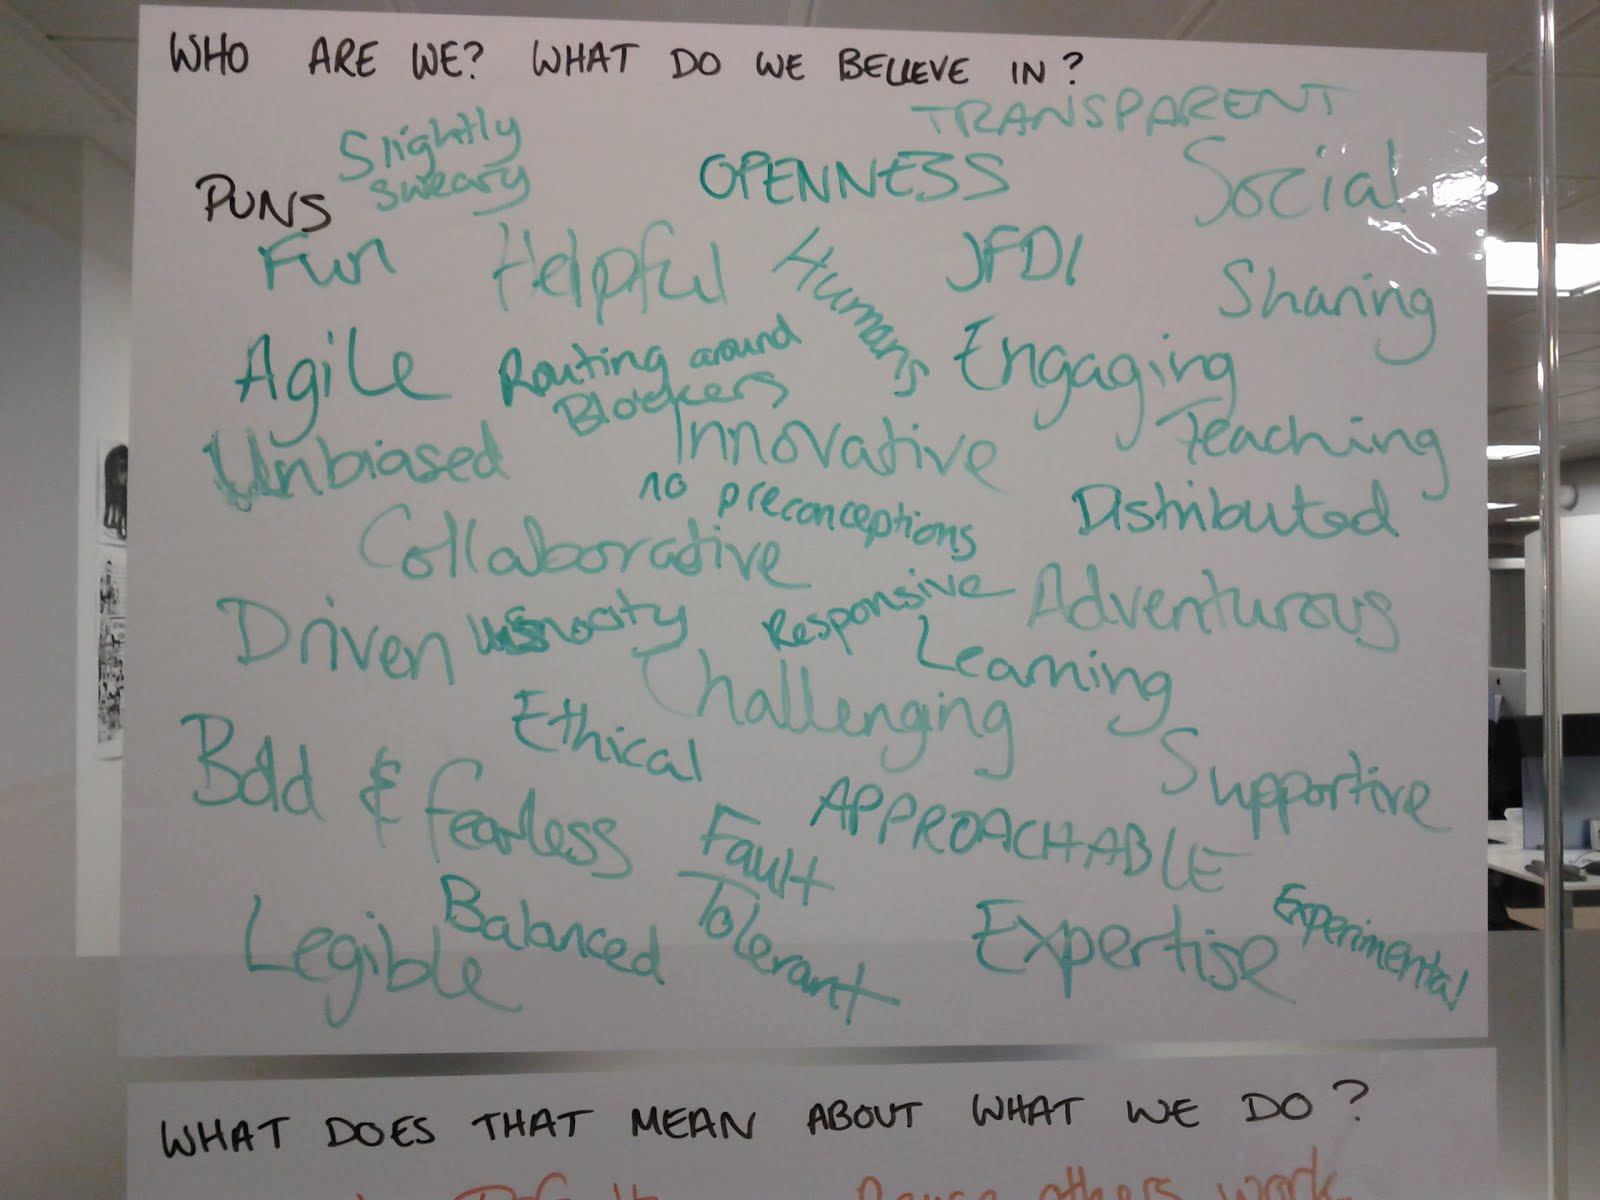 WHO ARE WE? WHAT DO WE BELIEVE IN?
TRANSPARENT
Slightly
sweary
OPENNESS
Social
PUNS
Fun
Helpful
Humans
JFDI
Sharing
Agile
Routing around
Blockers
Engaging
Unbiased
Innovative
Teaching
no preconceptions
Distributed
Collaborative
Driven
Responsive
Adventurous
Learning
Challenging
Ethical
Bold & fearless
Supportive
APPROACHABLE
Fault
Tolerant
Balanced
Legible
Expertise
Experimental
WHAT DOES THAT MEAN ABOUT WHAT WE DO?
others work